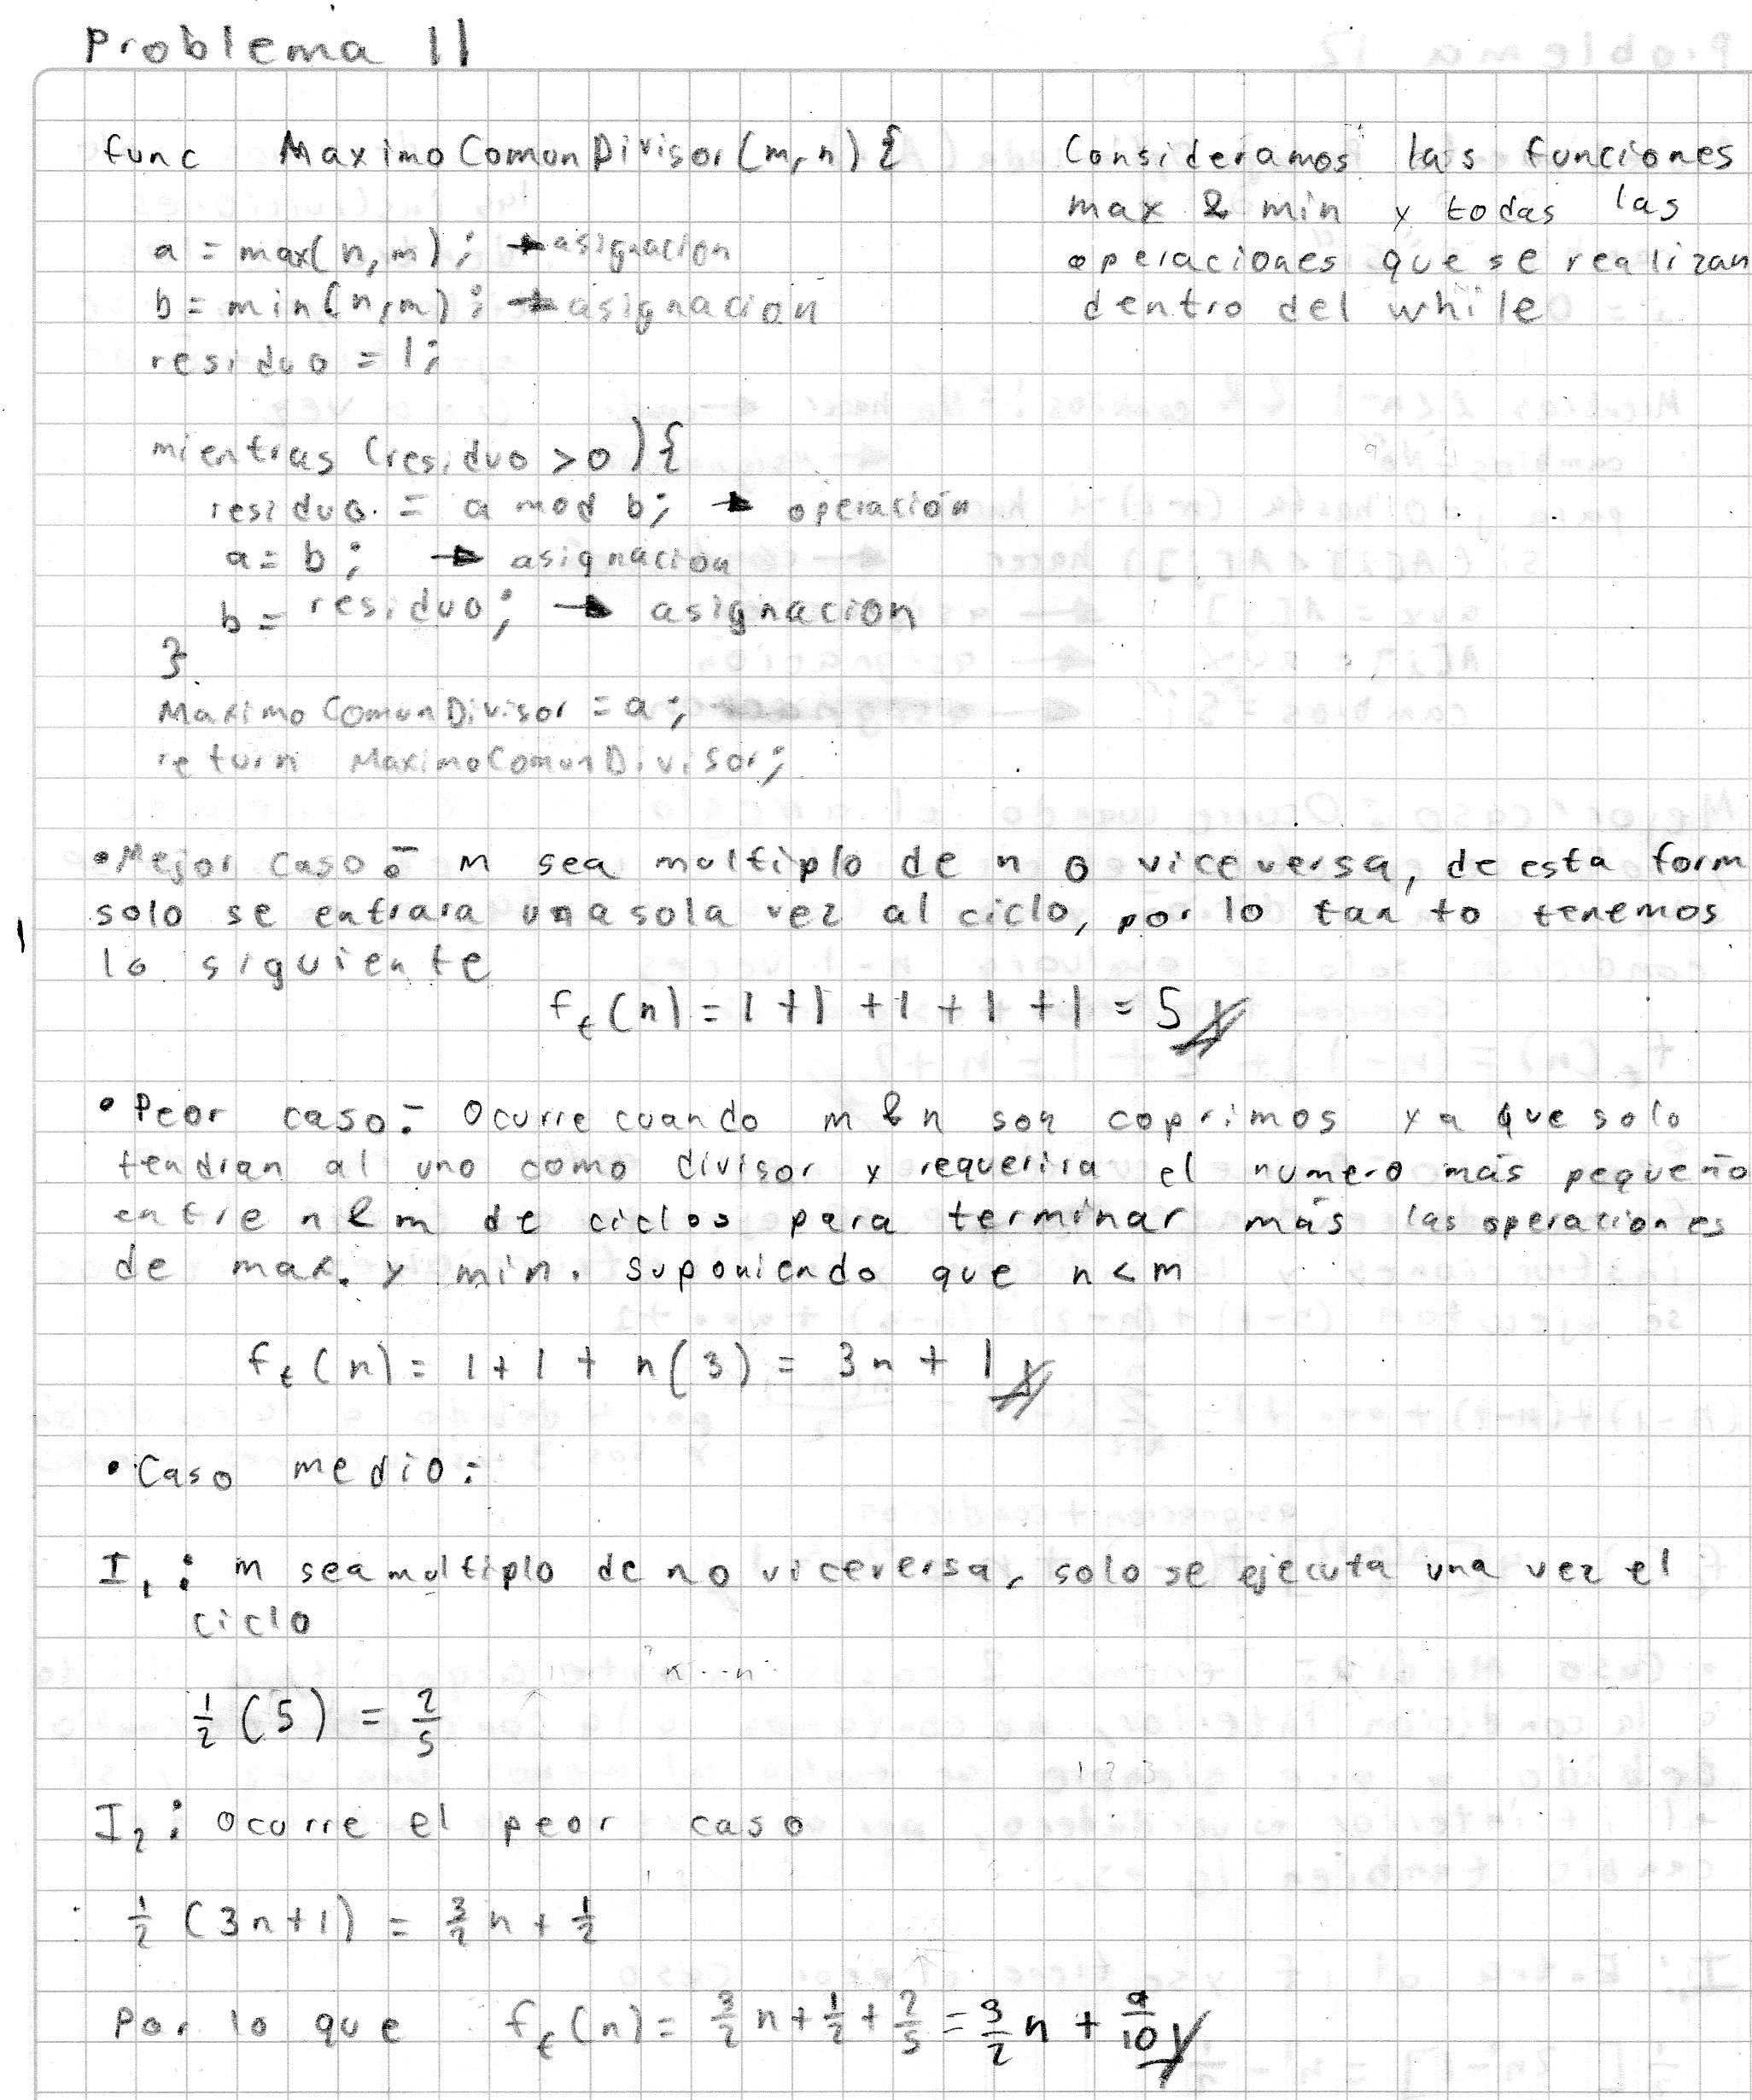 Problema 11
func MaximoComunDivisor(m,n){
a = max(n,m); → asignacion
b = min(n,m); → asignacion
residuo = 1;
mientras (residuo > 0){
residuo = a mod b; → operación
a = b; → asignacion
b = residuo; → asignacion
}
MaximoComunDivisor = a;
return MaximoComunDivisor;
Consideramos las funciones
max & min y todas las
operaciones que se realizan
dentro del while
• Mejor caso: m sea multiplo de n o viceversa, de esta form
solo se entrara una sola vez al ciclo, por lo tanto tenemos
lo siguiente
f_t(n) = 1 + 1 + 1 + 1 + 1 = 5
• Peor caso: Ocurre cuando m & n son coprimos ya que solo
tendran al uno como divisor y requerira el numero más pequeño
entre n & m de ciclos para terminar más las operaciones
de max. y min. suponiendo que n < m
f_t(n) = 1 + 1 + n(3) = 3n + 1
• Caso medio:
I₁: m sea multiplo de n o viceversa, solo se ejecuta una vez el
ciclo
1/2 (5) = 2/5
I₂: Ocurre el peor caso
1/2 (3n+1) = 3/2 n + 1/2
Por lo que f_t(n) = 3/2 n + 1/2 + 2/5 = 3/2 n + 9/10